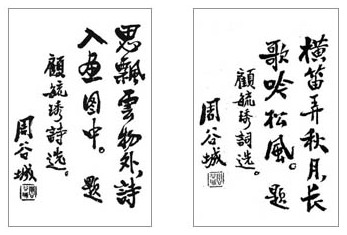 思飄雲物外，詩
入畫圖中。題
顧毓琇詩選。
周谷城
橫笛弄秋月，長
歌吟松風。題
顧毓琇詞選。
周谷城